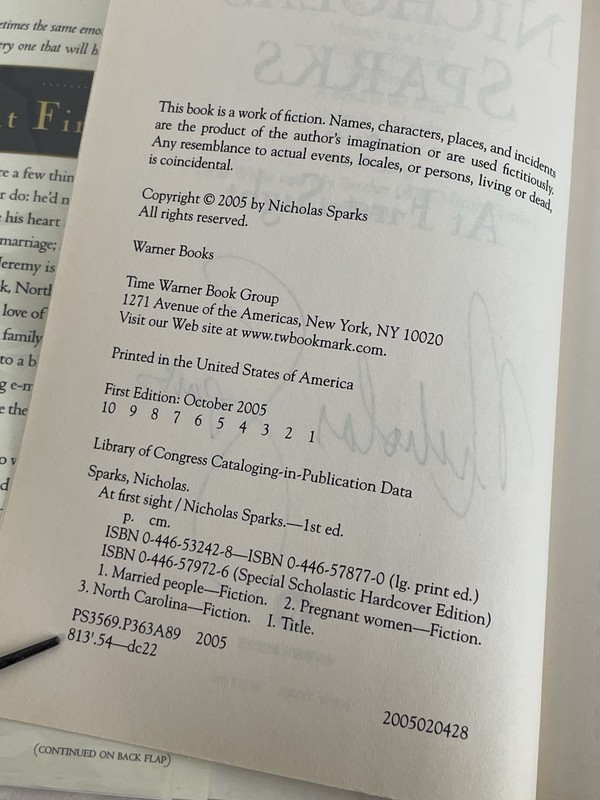 This book is a work of fiction. Names, characters, places, and incidents
are the product of the author's imagination or are used fictitiously.
Any resemblance to actual events, locales, or persons, living or dead,
is coincidental.
Copyright © 2005 by Nicholas Sparks
All rights reserved.
Warner Books
Time Warner Book Group
1271 Avenue of the Americas, New York, NY 10020
Visit our Web site at www.twbookmark.com.
Printed in the United States of America
First Edition: October 2005
10 9 8 7 6 5 4 3 2 1
Library of Congress Cataloging-in-Publication Data
Sparks, Nicholas.
At first sight / Nicholas Sparks.—1st ed.
p. cm.
ISBN 0-446-53242-8—ISBN 0-446-57877-0 (lg. print ed.)
ISBN 0-446-57972-6 (Special Scholastic Hardcover Edition)
1. Married people—Fiction. 2. Pregnant women—Fiction.
3. North Carolina—Fiction. I. Title.
PS3569.P363A89 2005
813'.54—dc22
2005020428
etimes the same emo
ery one that will h
t Fir
re a few thin
r do: he'd n
his heart
marriage;
Jeremy is
k, Nort
love of
family
to a b
g e-m
e the
o v
d
(CONTINUED ON BACK FLAP)
NICHOLAS
SPARKS
At First Sight
Nicholas